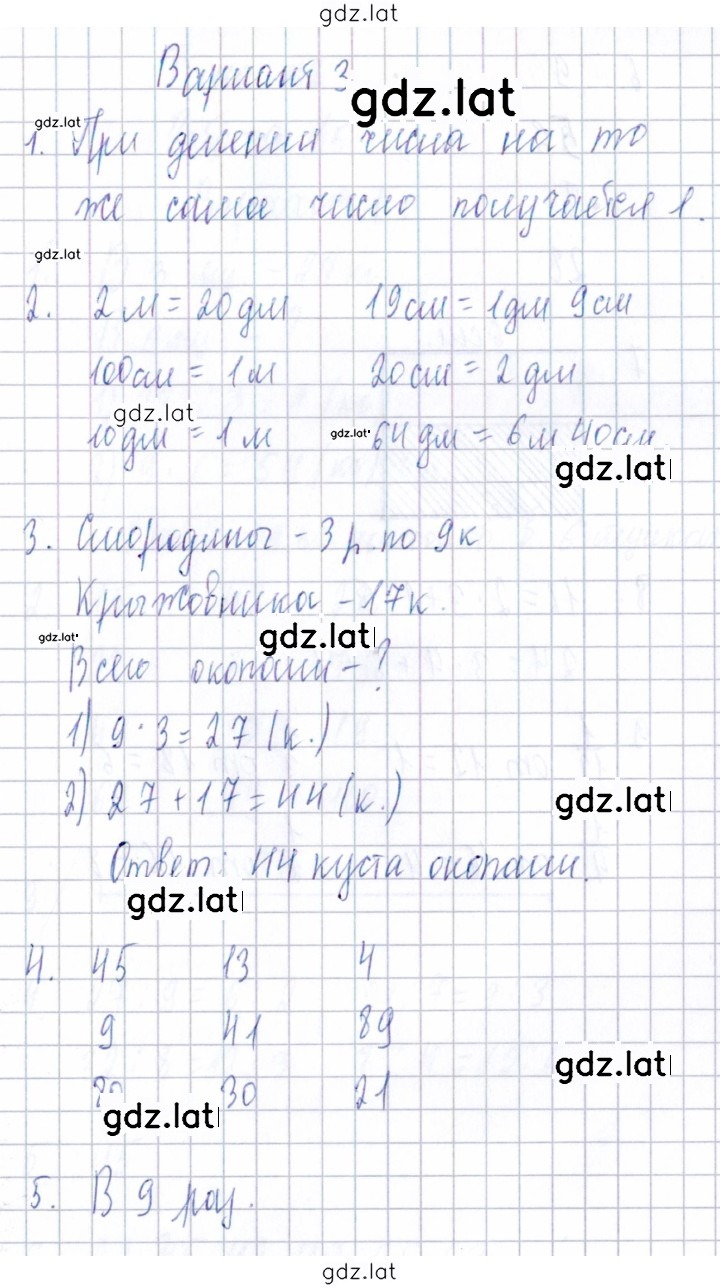 gdz.lat
Вариант 3
gdz.lat
gdz.lat
1. При делении числа на то
же самое число получается 1.
gdz.lat
2. 2 м = 20 дм 19 см = 1 дм 9 см
100 см = 1 м 20 см = 2 дм
gdz.lat
10 дм = 1 м gdz.lat 64 дм = 6 м 40 см
gdz.lat
3. Смородины - 3 р. по 9 к
Крыжовника - 17 к.
gdz.lat gdz.lat
Всего окопали - ?
1) 9 · 3 = 27 (к.)
2) 27 + 17 = 44 (к.)
gdz.lat
Ответ: 44 куста окопали.
gdz.lat
4. 45 13 4
9 41 89
gdz.lat
30 21
gdz.lat
5. В 9 раз.
gdz.lat